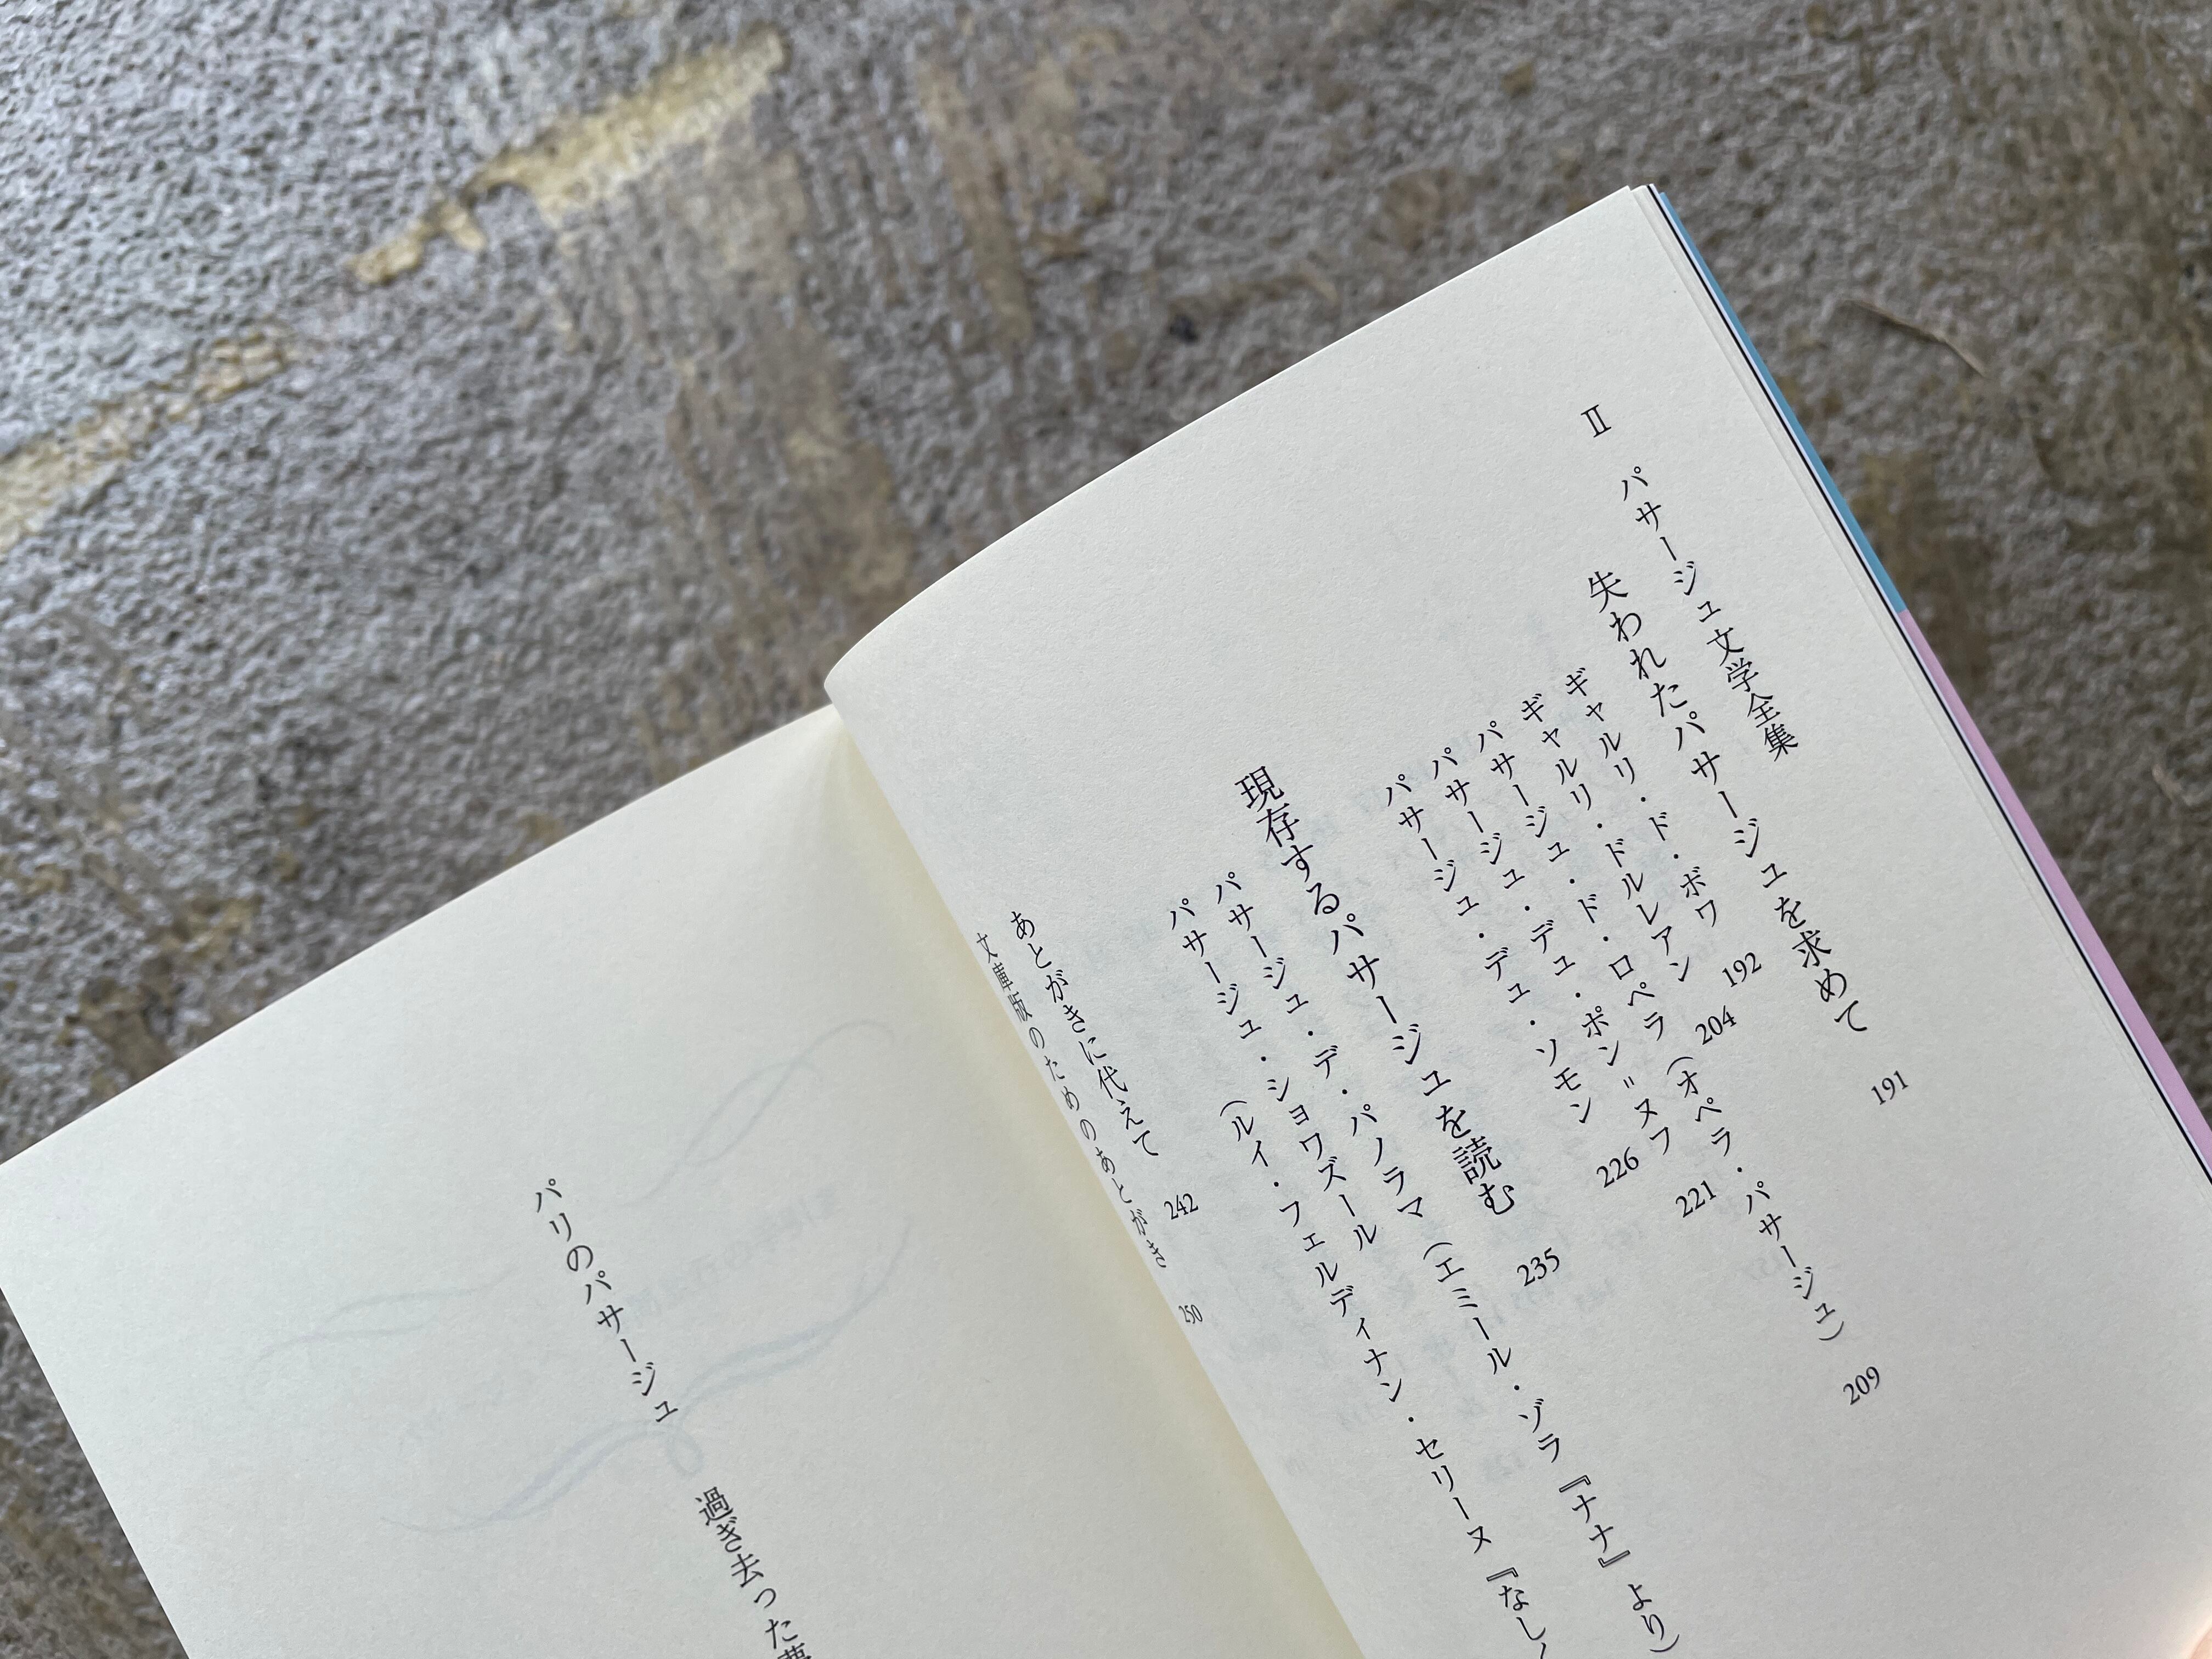 Ⅱ パサージュ文学全集
失われたパサージュを求めて 191
ギャルリ・ド・ボワ 192
ギャルリ・ドルレアン 204
パサージュ・ド・ロペラ（オペラ・パサージュ） 209
パサージュ・デュ・ポン＝ヌフ 221
パサージュ・デュ・ソモン 226
現存するパサージュを読む 235
パサージュ・デ・パノラマ（エミール・ゾラ『ナナ』より）
パサージュ・ショワズール（ルイ・フェルディナン・セリーヌ『なし
あとがきに代えて 242
文庫版のためのあとがき 250
パリのパサージュ 過ぎ去った